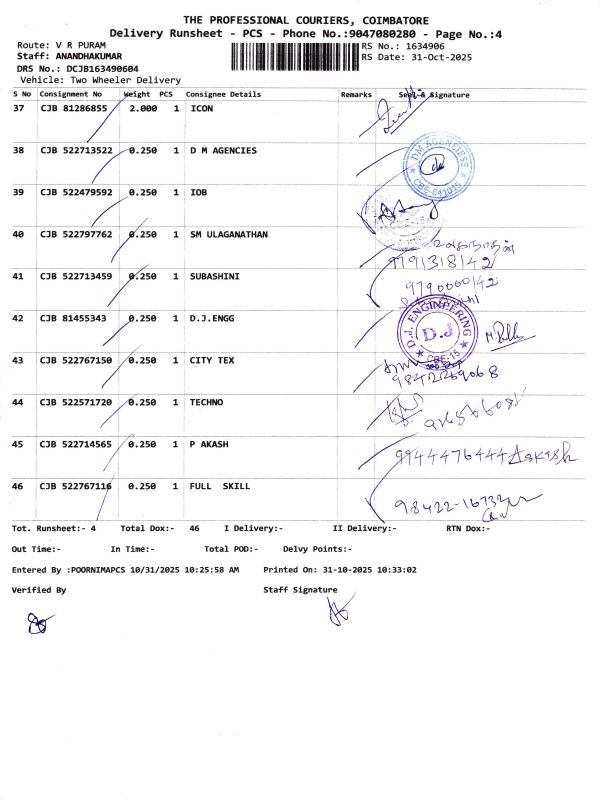 THE PROFESSIONAL COURIERS, COIMBATORE
Delivery Runsheet - PCS - Phone No.:9047080280 - Page No.:4
Route: V R PURAM
RS No.: 1634906
Staff: ANANDHAKUMAR
RS Date: 31-Oct-2025
DRS No.: DCJB163490604
Vehicle: Two Wheeler Delivery
S No Consignment No Weight PCS Consignee Details Remarks Seal & Signature
37 CJB 81286855 2.000 1 ICON
38 CJB 522713522 0.250 1 D M AGENCIES
DM AGENCIESS
CBE-641015
39 CJB 522479592 0.250 1 IOB
40 CJB 522797762 0.250 1 SM ULAGANATHAN
உலகநாதன்
9791318142
41 CJB 522713459 0.250 1 SUBASHINI
9790000142
42 CJB 81455343 0.250 1 D.J.ENGG
D.J. ENGINEERING
D.J
CBE-15
43 CJB 522767150 0.250 1 CITY TEX
9842269068
44 CJB 522571720 0.250 1 TECHNO
45 CJB 522714565 0.250 1 P AKASH
9944476444 Aakash
46 CJB 522767116 0.250 1 FULL SKILL
98422-16732
Tot. Runsheet:- 4 Total Dox:- 46 I Delivery:- II Delivery:- RTN Dox:-
Out Time:- In Time:- Total POD:- Delvy Points:-
Entered By :POORNIMAPCS 10/31/2025 10:25:58 AM Printed On: 31-10-2025 10:33:02
Verified By Staff Signature